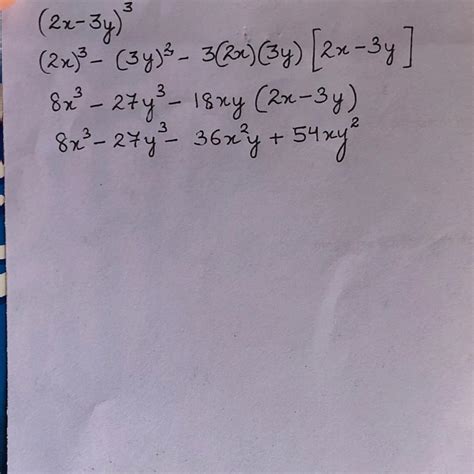 (2x-3y)³
(2x)³ - (3y)² - 3(2x)(3y) [2x-3y]
8x³ - 27y³ - 18xy (2x-3y)
8x³ - 27y³ - 36x²y + 54xy²